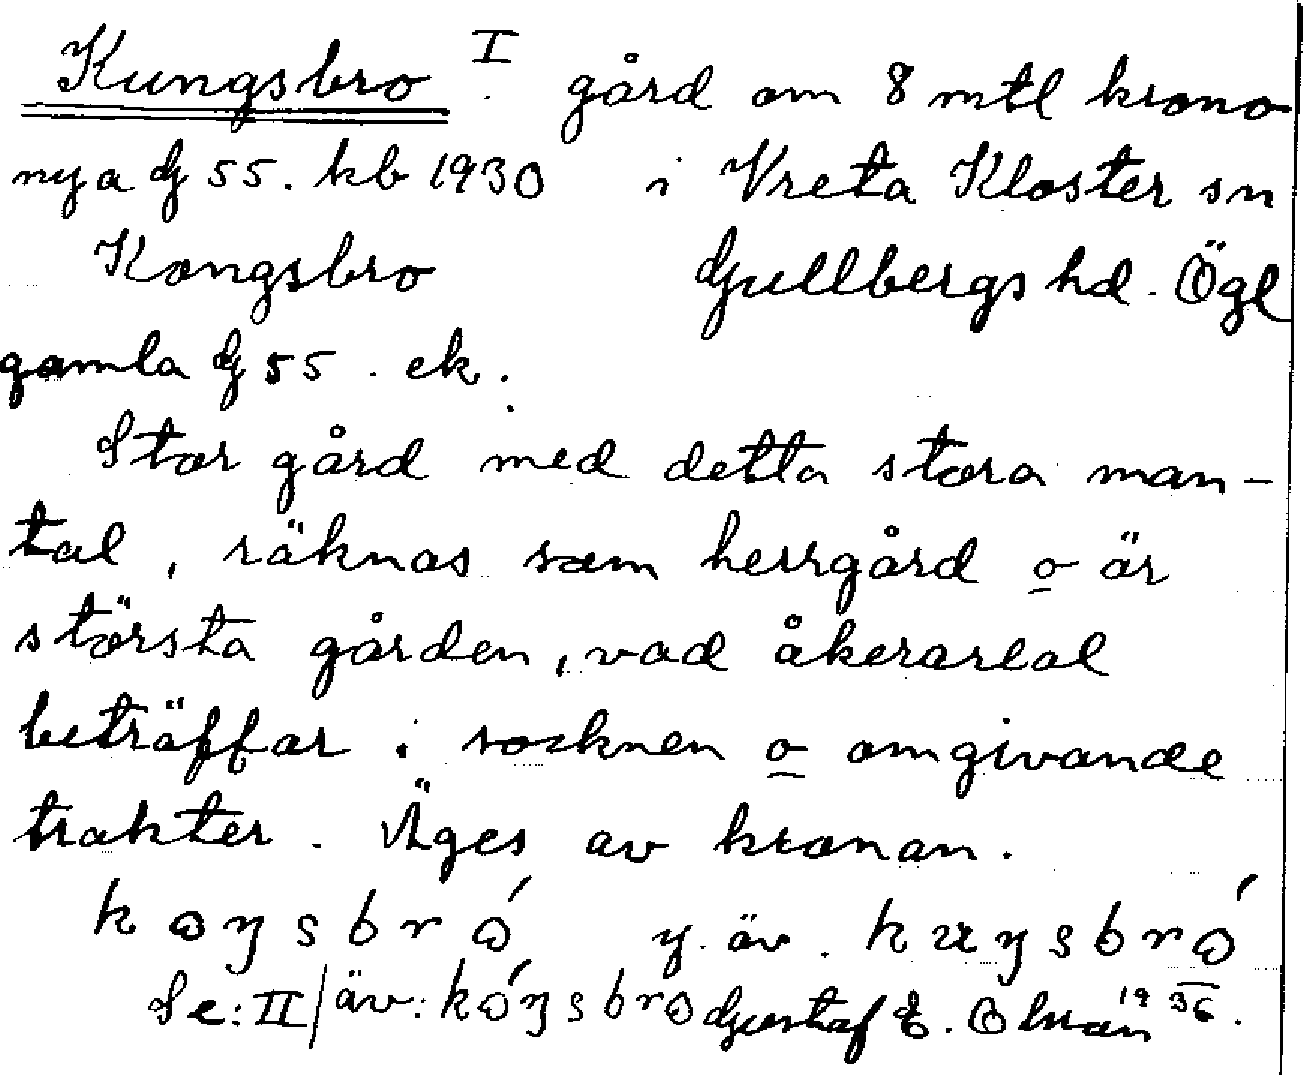 Kungsbro I gård om 8 mtl krono
nya G 55. kb 1930 i Vreta Kloster sn
Kongsbro Gullbergs hd. Ögl
gamla G 55. ek.
Stor gård med detta stora man-
tal, räknas som herrgård o är
största gården, vad åkerareal
beträffar i socknen o omgivande
trakter. Äges av kronan.
kɷŋsbrɷ́ y. äv. kuŋsbrɷ́
Se: II / äv: kɷ́ŋsbrɷ Gustaf E. 1936.